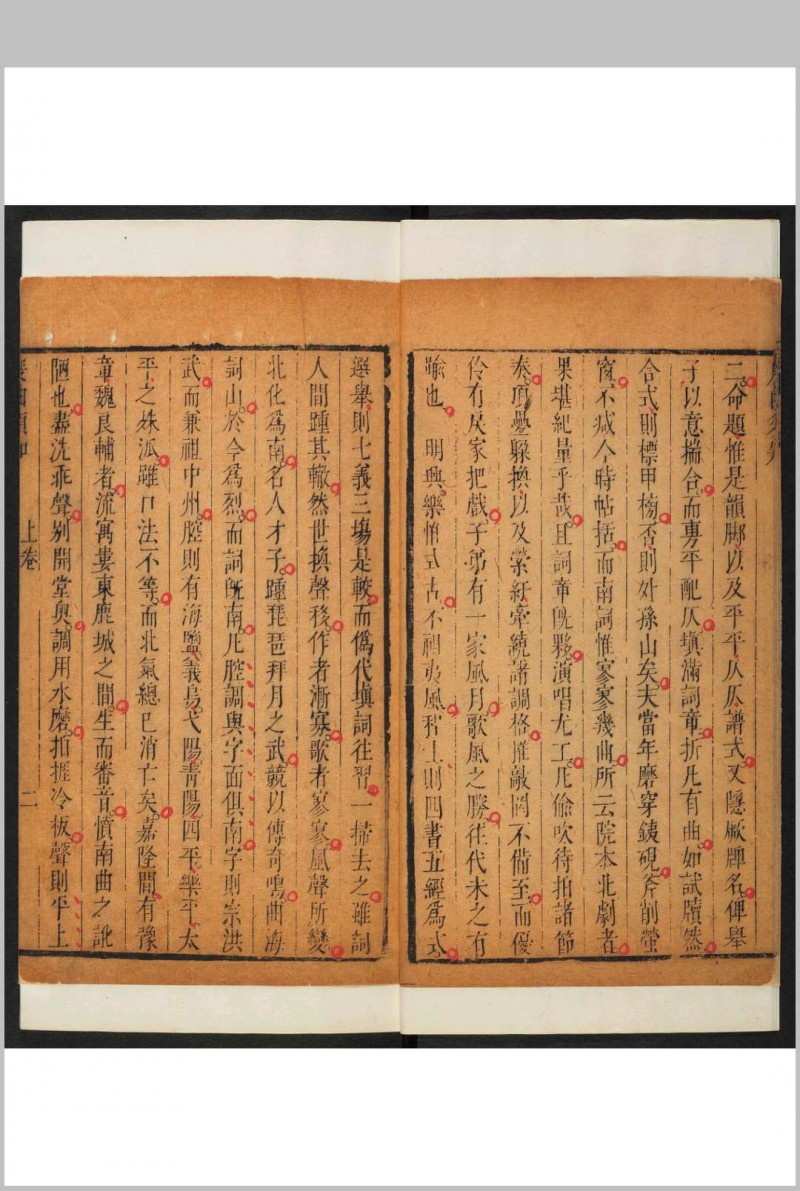 二命題惟是韻脚以及平平仄仄譜式又隱厥牌名俾舉
子以意揣合而專平配仄塡滿詞章折凡有曲如試牘然
合式則標甲榜否則外孫山矣夫當年磨穿鉄硯斧削螢
窗不减今時帖括而南詞惟寥寥幾曲所云院本北劇者
果堪紀量乎哉且詞章旣夥演唱尤工凡偷吹待拍諸節
奏頂疊躱換以及縈紆牽繞諸調格推敲罔不備至而優
伶有戾家把戲子弟有一家風月歌風之勝徃代未之有
踰也　明興樂惟式古不祖夷風程士則四書五經爲式
選舉則七義三塲是較而僞代塡詞徃習一掃去之雖詞
人間踵其轍然世換聲移作者漸寡歌者寥寥風聲所變
北化爲南名人才子踵琵琶拜月之武競以傳奇鳴曲海
詞山於今爲烈而詞旣南凡腔調與字面俱南字則宗洪
武而兼祖中州腔則有海鹽義烏弋陽靑陽四平樂平太
平之殊泒雖口法不等而北氣總已消亡矣嘉隆間有豫
章魏良輔者流寓婁東鹿城之間生而審音憤南曲之訛
陋也盡洗乖聲別開堂奥調用水磨拍捱冷板聲則平上
度曲須知
上卷
二